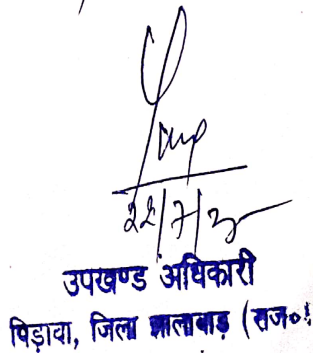 22/7/
उपखण्ड अधिकारी
पिड़ावा, जिला झालावाड़ (राज०)